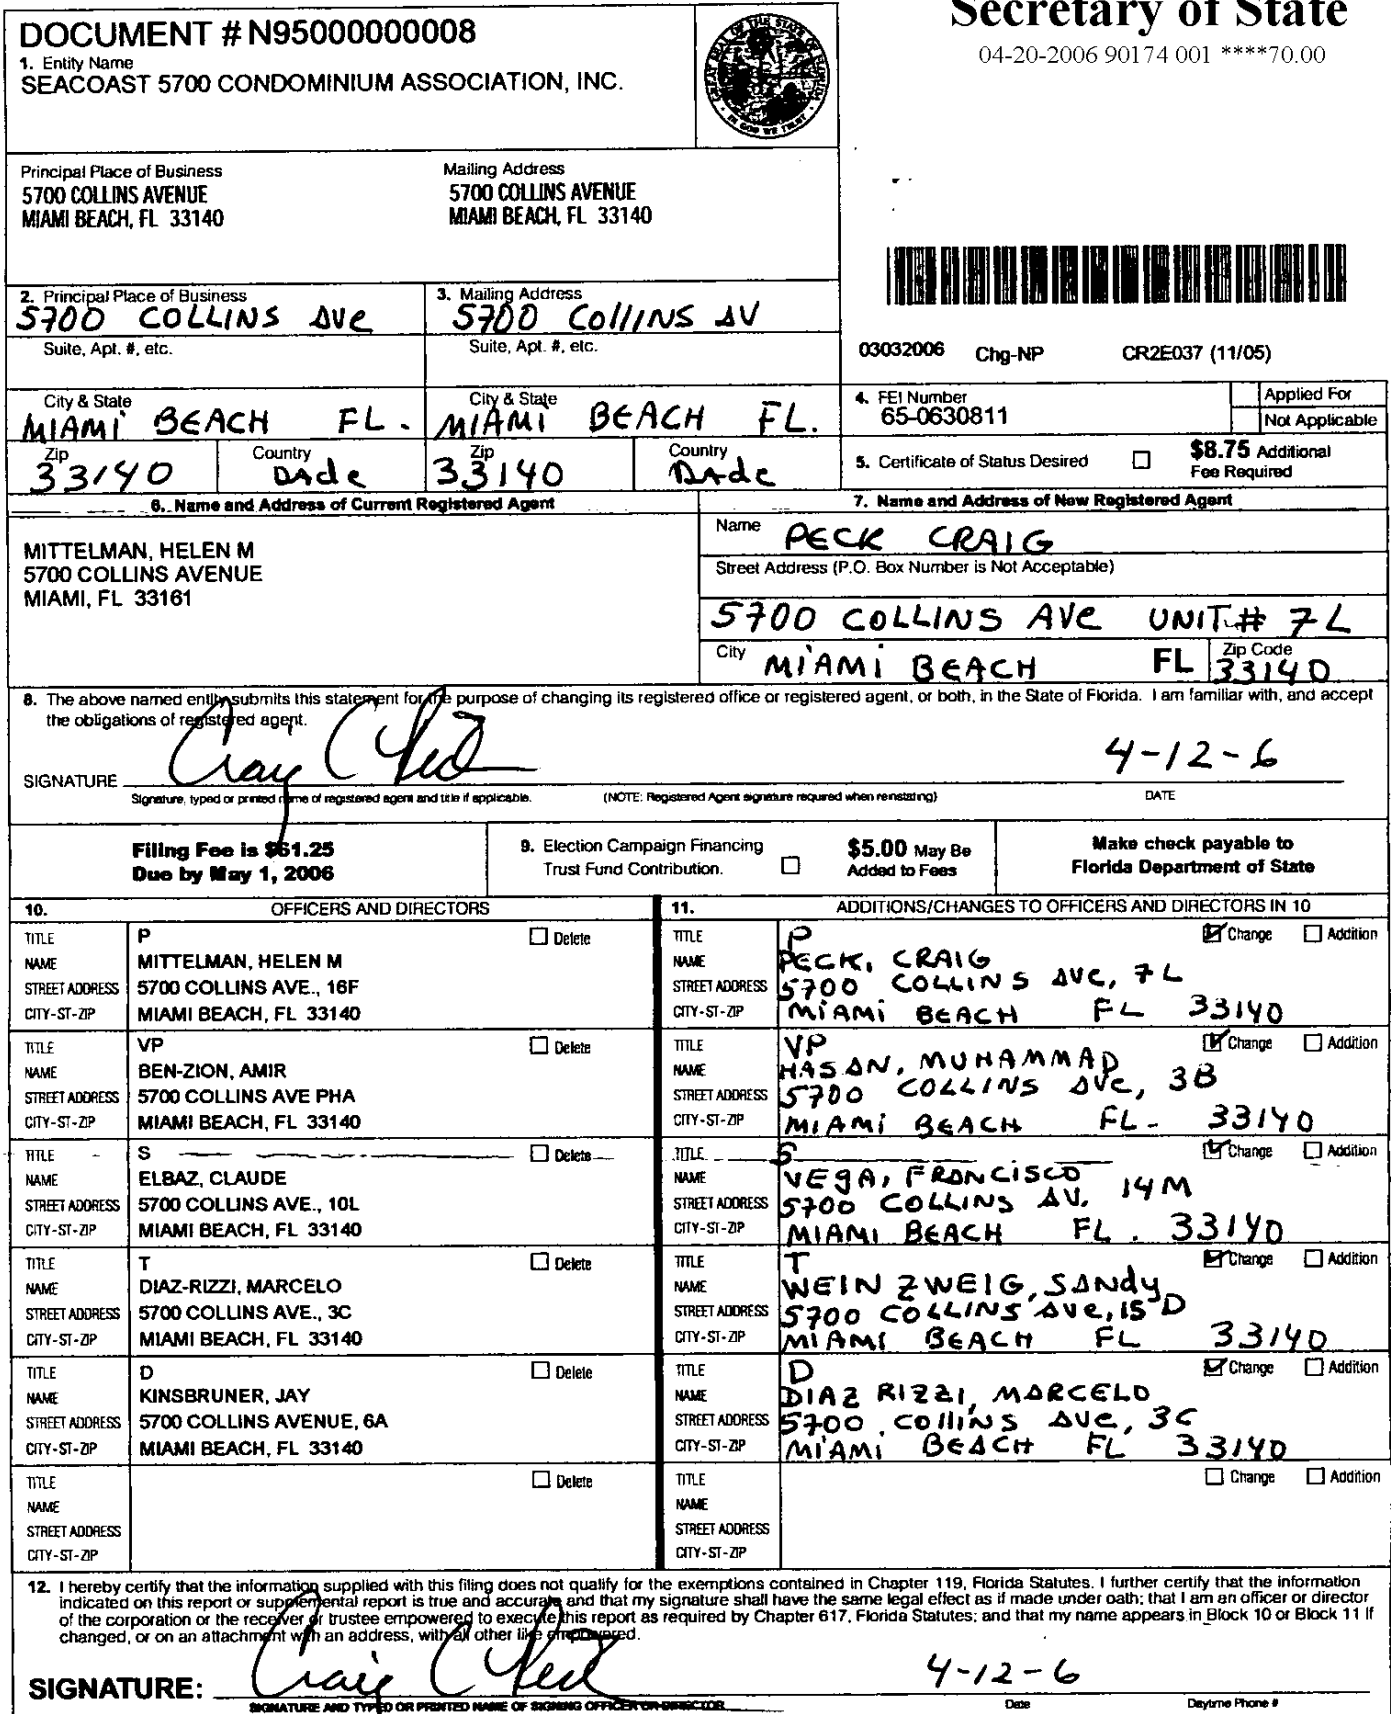 Secretary of State
04-20-2006 90174 001 ****70.00
DOCUMENT # N95000000008
1. Entity Name
SEACOAST 5700 CONDOMINIUM ASSOCIATION, INC.
Principal Place of Business
5700 COLLINS AVENUE
MIAMI BEACH, FL 33140
Mailing Address
5700 COLLINS AVENUE
MIAMI BEACH, FL 33140
2. Principal Place of Business
5700 COLLINS AVe
3. Mailing Address
5700 COllINS AV
Suite, Apt. #, etc.
Suite, Apt. #, etc.
03032006 Chg-NP CR2E037 (11/05)
City & State
MIAMi BEACH FL.
City & State
MIAMI BEACH FL.
4. FEI Number
65-0630811
Applied For
Not Applicable
Zip
33140
Country
DAde
Zip
33140
Country
DAde
5. Certificate of Status Desired
$8.75 Additional
Fee Required
6. Name and Address of Current Registered Agent
MITTELMAN, HELEN M
5700 COLLINS AVENUE
MIAMI, FL 33161
7. Name and Address of New Registered Agent
Name PECK CRAIG
Street Address (P.O. Box Number is Not Acceptable)
5700 COLLINS AVe UNIT# 7L
City MiAMi BEACH FL Zip Code 33140
8. The above named entity submits this statement for the purpose of changing its registered office or registered agent, or both, in the State of Florida. I am familiar with, and accept
the obligations of registered agent.
SIGNATURE Craig C Peck 4-12-6
Signature, typed or printed name of registered agent and title if applicable. (NOTE: Registered Agent signature required when reinstating) DATE
Filing Fee is $61.25
Due by May 1, 2006
9. Election Campaign Financing
Trust Fund Contribution.
$5.00 May Be
Added to Fees
Make check payable to
Florida Department of State
10. OFFICERS AND DIRECTORS
TITLE P Delete
NAME MITTELMAN, HELEN M
STREET ADDRESS 5700 COLLINS AVE., 16F
CITY-ST-ZIP MIAMI BEACH, FL 33140
TITLE VP Delete
NAME BEN-ZION, AMIR
STREET ADDRESS 5700 COLLINS AVE PHA
CITY-ST-ZIP MIAMI BEACH, FL 33140
TITLE S Delete
NAME ELBAZ, CLAUDE
STREET ADDRESS 5700 COLLINS AVE., 10L
CITY-ST-ZIP MIAMI BEACH, FL 33140
TITLE T Delete
NAME DIAZ-RIZZI, MARCELO
STREET ADDRESS 5700 COLLINS AVE., 3C
CITY-ST-ZIP MIAMI BEACH, FL 33140
TITLE D Delete
NAME KINSBRUNER, JAY
STREET ADDRESS 5700 COLLINS AVENUE, 6A
CITY-ST-ZIP MIAMI BEACH, FL 33140
TITLE Delete
NAME
STREET ADDRESS
CITY-ST-ZIP
11. ADDITIONS/CHANGES TO OFFICERS AND DIRECTORS IN 10
TITLE P Change Addition
NAME PECK, CRAIG
STREET ADDRESS 5700 COLLINS AVe, 7L
CITY-ST-ZIP MiAMi BEACH FL 33140
TITLE VP Change Addition
NAME HASAN, MUHAMMAD
STREET ADDRESS 5700 COLLINS AVe, 3B
CITY-ST-ZIP MIAMi BEACH FL- 33140
TITLE S Change Addition
NAME VEGA, FRANCISCO
STREET ADDRESS 5700 COLLINS AV. 14M
CITY-ST-ZIP MIAMI BEACH FL. 33140
TITLE T Change Addition
NAME WEIN ZWEIG, SANdy
STREET ADDRESS 5700 COLLINS AVe, 15 D
CITY-ST-ZIP MIAMI BEACH FL 33140
TITLE D Change Addition
NAME DIAZ RIZZI, MARCELO
STREET ADDRESS 5700 COllINS AVe, 3C
CITY-ST-ZIP MiAMi BEACH FL 33140
TITLE Change Addition
NAME
STREET ADDRESS
CITY-ST-ZIP
12. I hereby certify that the information supplied with this filing does not qualify for the exemptions contained in Chapter 119, Florida Statutes. I further certify that the information
indicated on this report or supplemental report is true and accurate and that my signature shall have the same legal effect as if made under oath; that I am an officer or director
of the corporation or the receiver or trustee empowered to execute this report as required by Chapter 617, Florida Statutes; and that my name appears in Block 10 or Block 11 if
changed, or on an attachment with an address, with all other like empowered.
SIGNATURE: Craig C Peck 4-12-6
SIGNATURE AND TYPED OR PRINTED NAME OF SIGNING OFFICER OR DIRECTOR Date Daytime Phone #